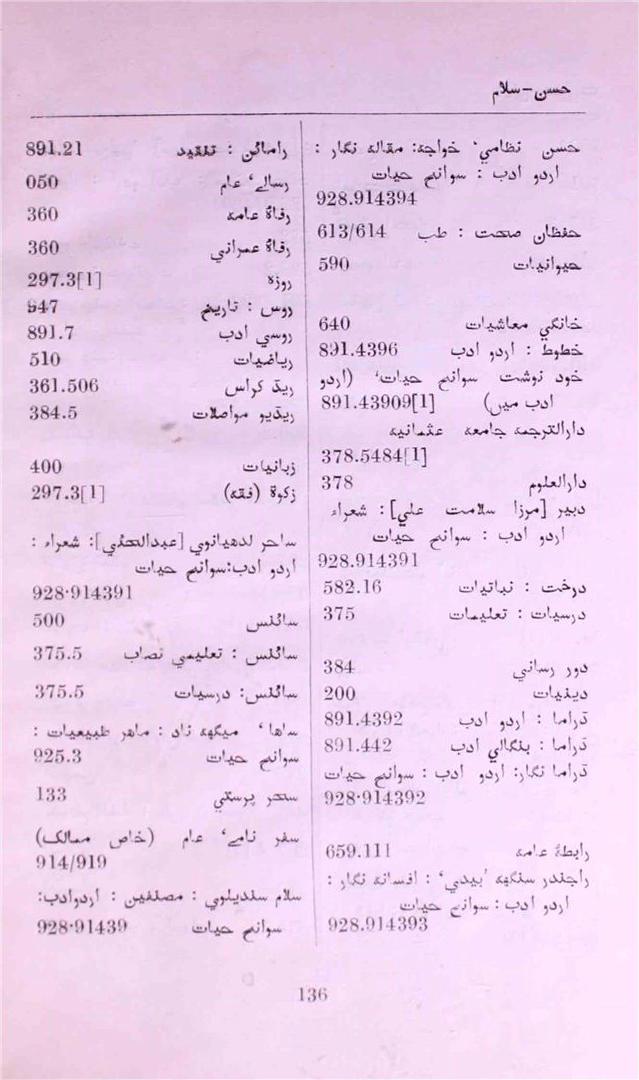 حسن-سلام
حسن نظامي، خواجہ: مقالہ نگار :
اردو ادب : سوانح حیات
928.914394
حفظان صحت : طب 613/614
حیوانیات 590
خانگي معاشیات 640
خطوط : اردو ادب 891.4396
خود نوشت سوانح حیات، (اردو
ادب میں) 891.43909[1]
دارالترجمہ جامعہ عثمانیہ
378.5484[1]
دارالعلوم 378
دبیر [مرزا سلامت علي]: شعراء
اردو ادب : سوانح حیات
928.914391
درخت : نباتیات 582.16
درسیات : تعلیمات 375
دور رساني 384
دینیات 200
ڈراما : اردو ادب 891.4392
ڈراما : بنگالي ادب 891.442
ڈراما نگار: اردو ادب : سوانح حیات
928.914392
رابطۂ عامہ 659.111
راجندر سنگھہ 'بیدي' : افسانہ نگار :
اردو ادب : سوانح حیات
928.914393
رامائن : تنقید 891.21
رسالے، عام 050
رفاہ عامہ 360
رفاہ عمراني 360
روزہ 297.3[1]
روس : تاریخ 947
روسي ادب 891.7
ریاضیات 510
ریڈ کراس 361.506
ریڈیو مواصلات 384.5
زبانیات 400
زکوۃ (فقہ) 297.3[1]
ساحر لدھیانوي [عبدالحئي]: شعراء :
اردو ادب:سوانح حیات
928.914391
سائنس 500
سائنس : تعلیمي نصاب 375.5
سائنس: درسیات 375.5
ساھا، میگھہ ناد : ماھر طبیعیات :
سوانح حیات 925.3
سحر پرستي 133
سفر نامے، عام (خاص ممالک)
914/919
سلام سندیلوي : مصنفین : اردوادب:
سوانح حیات 928.91439
136